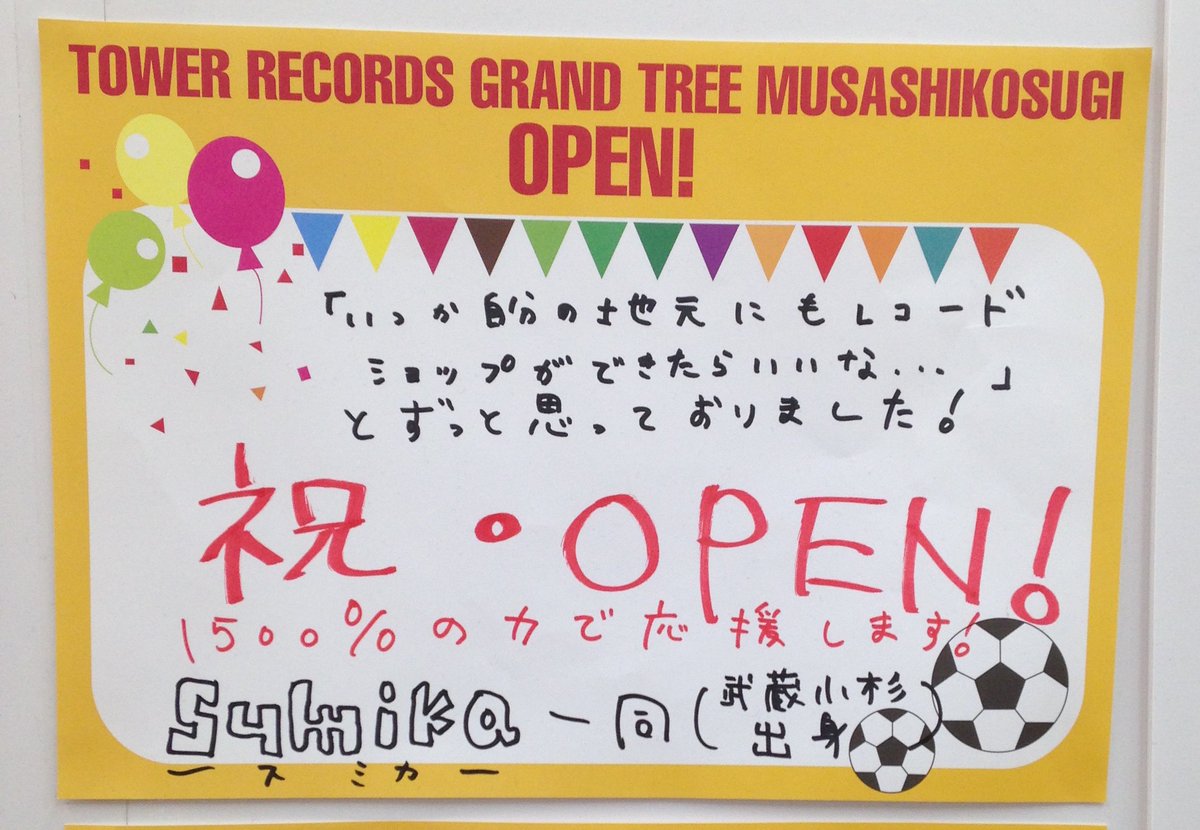 TOWER RECORDS GRAND TREE MUSASHIKOSUGI
OPEN!
「いつか自分の地元にもレコード
ショップができたらいいな...」
とずっと思っておりました!
祝・OPEN!
1500%の力で応援します!
sumika一同(武蔵小杉
出身)
ースミカー